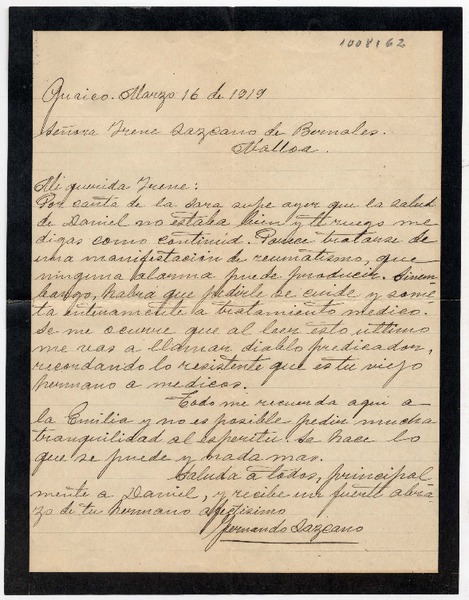 1008162
Quaico. Marzo 16 de 1919
Señora Irene Lazcano de Bernales.
Malloa.
Mi querida Irene:
Por carta de la Sara supe ayer que la salud
de Daniel no estaba bien y te ruego me
digas como continua. Parece tratarse de
una manifestacion de reumatismo, que
ninguna alarma puede producir. Sinem-
bargo, habra que pedirle se cuide y some-
ta enteramente a tratamiento medico.
Se me ocurre que al leer esto ultimo
me vas a llamar diablo predicador,
recordando lo resistente que es tu viejo
hermano a medicos.
Todo me recuerda aqui a
la Emilia y no es posible pedir mucha
tranquilidad al espiritu. Se hace lo
que se puede y nada mas.
Saluda a todos, principal-
mente a Daniel, y recibe un fuerte abra-
zo de tu hermano affectisimo
Fernando Lazcano